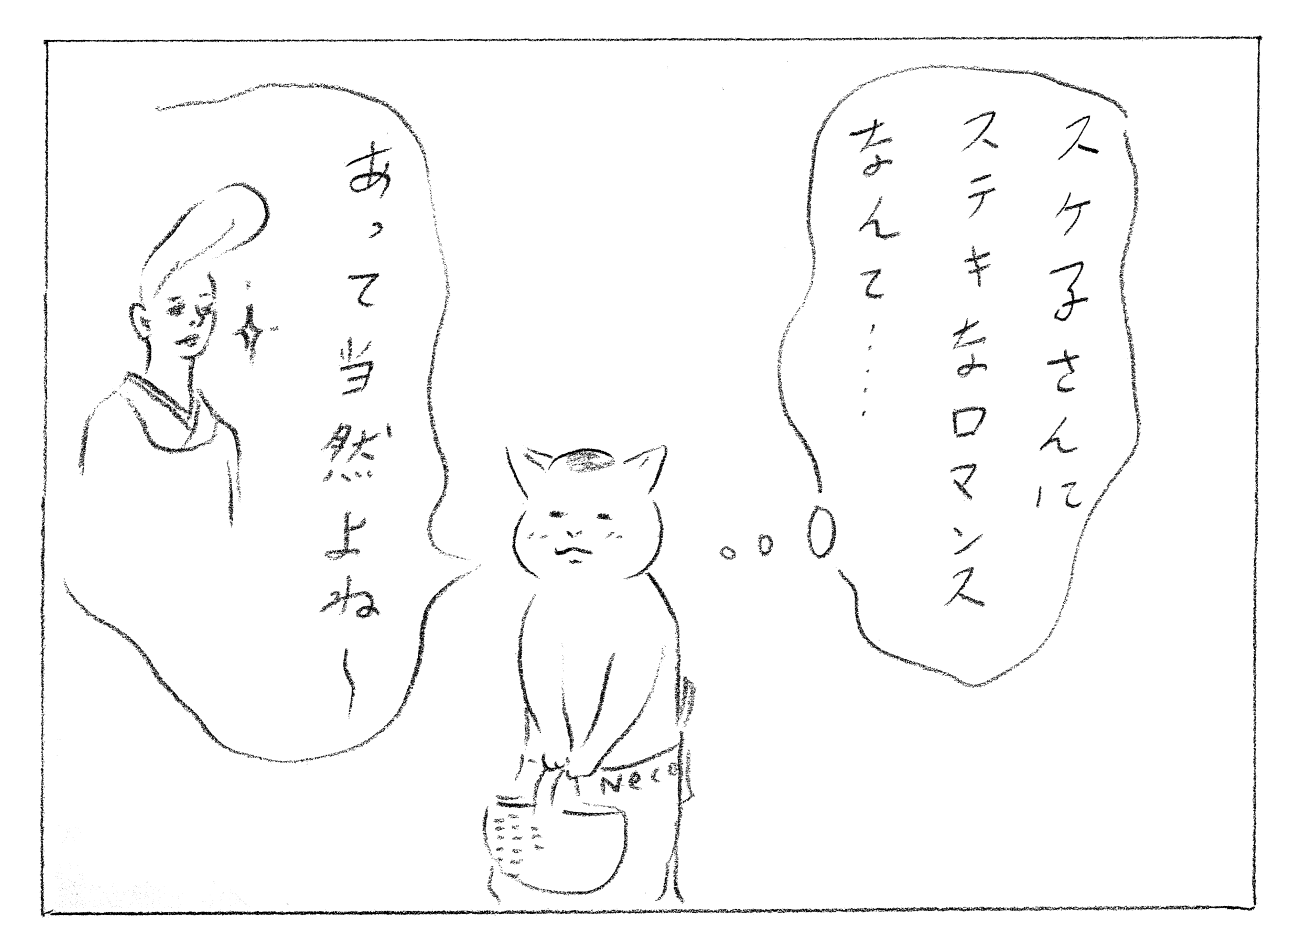 スケ子さんに
ステキなロマンス
なんて……
あって当然よね〜
Neco